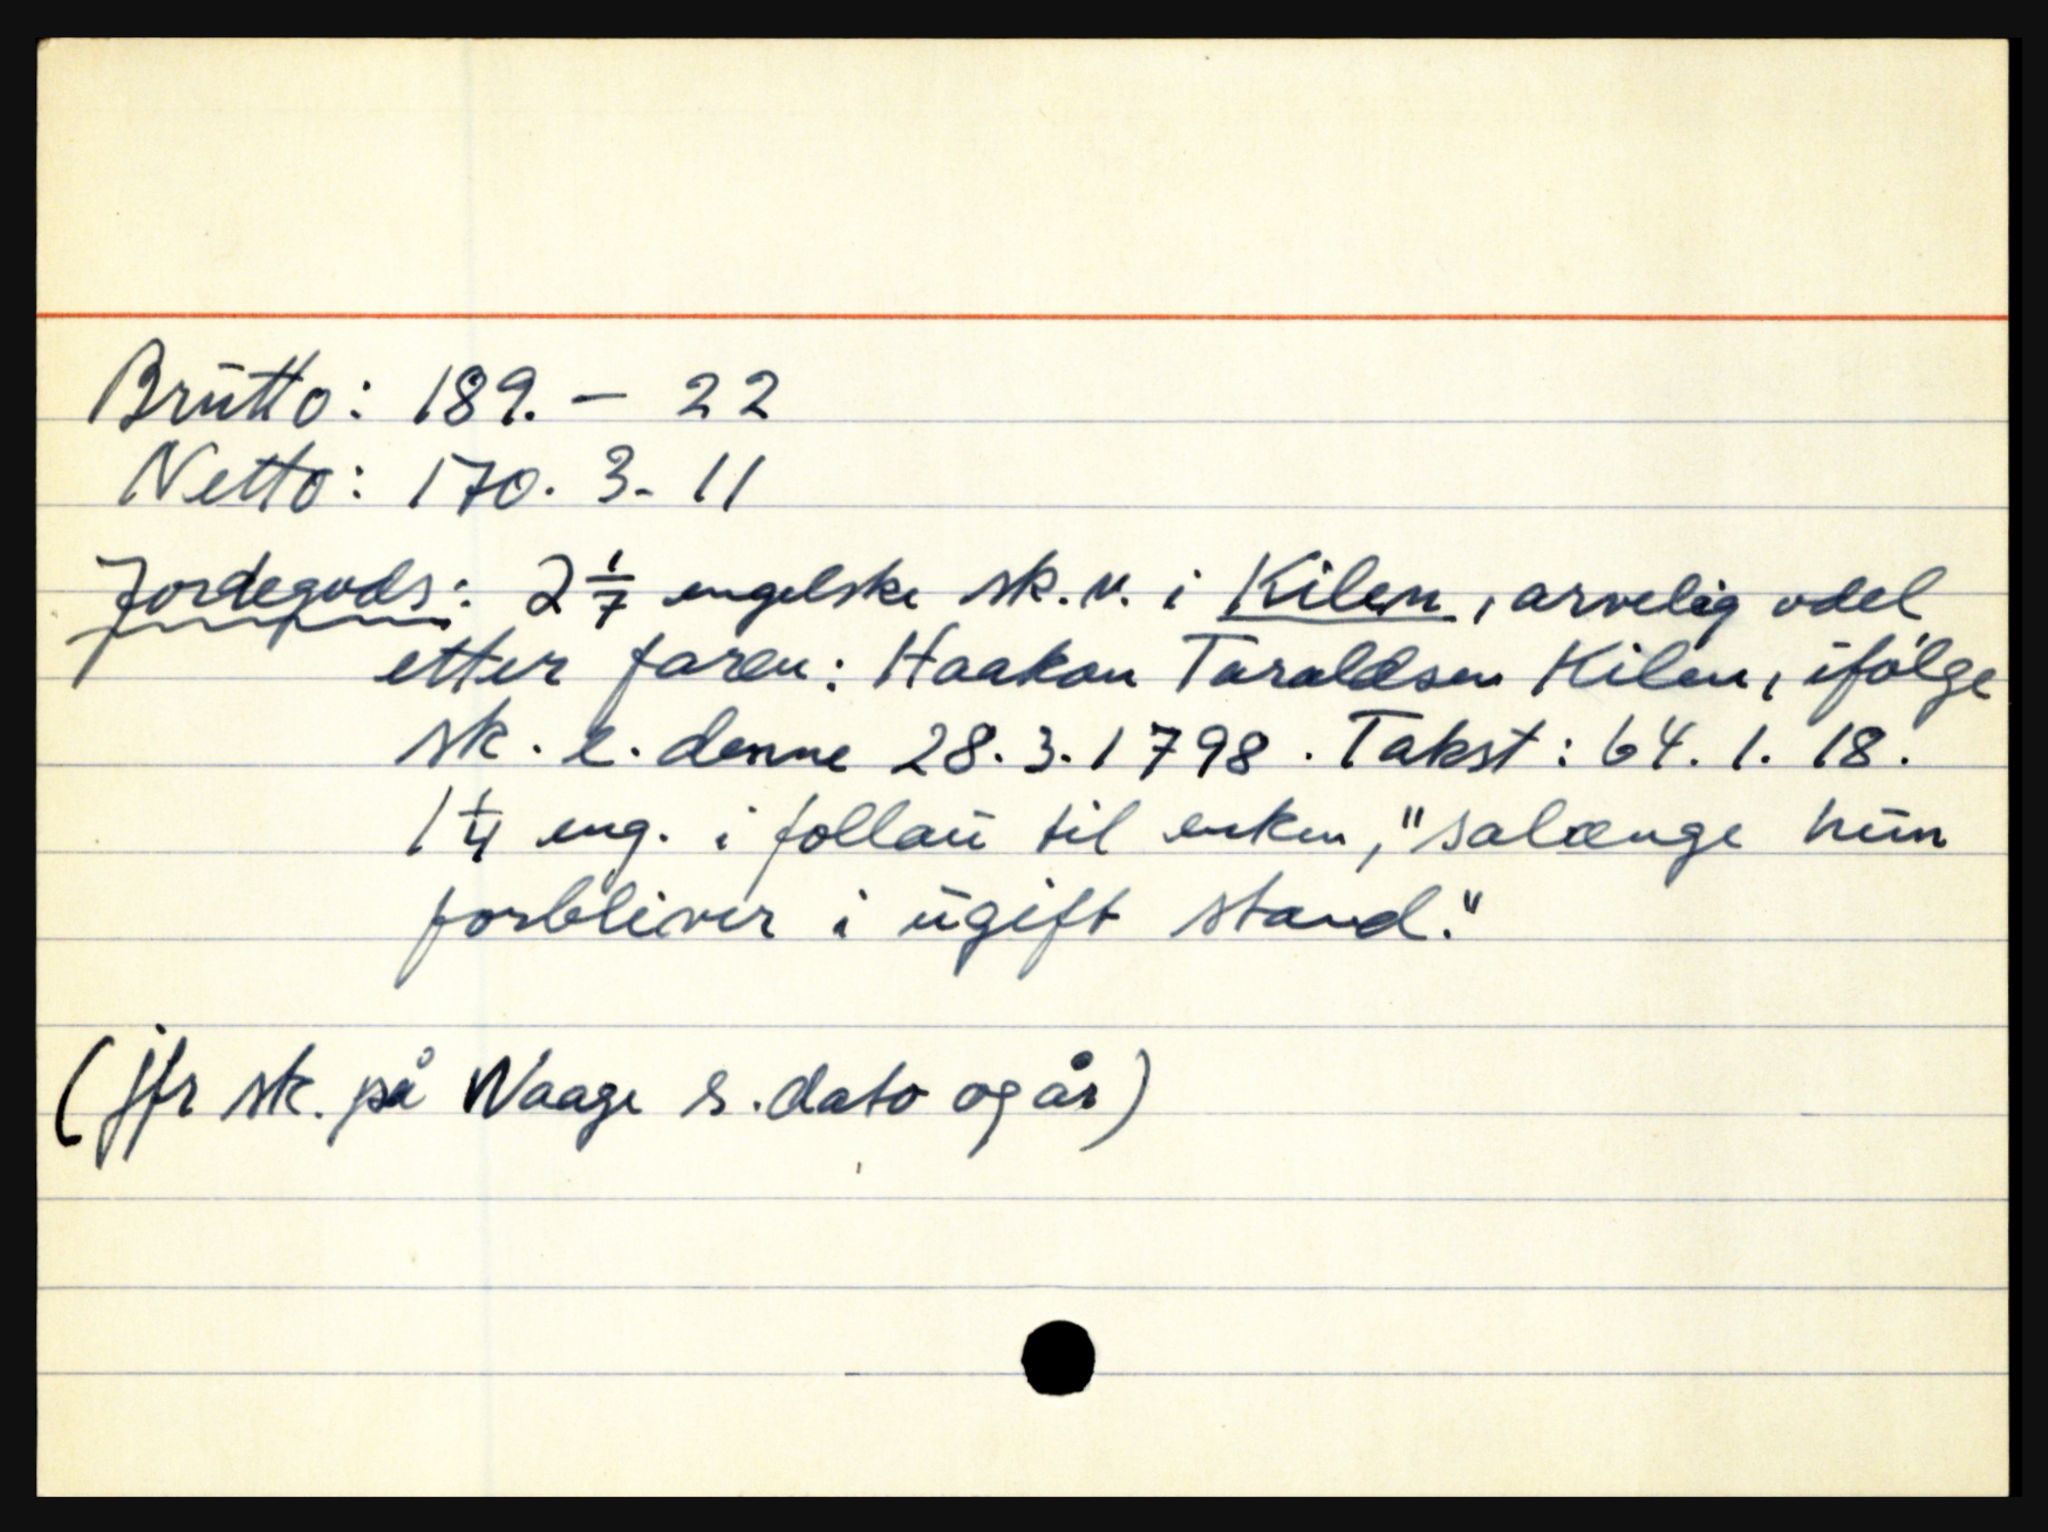 Brutto: 189. - 22
Netto: 170. 3. 11
Jordegods: 2 1/7 engelske sk. v. i Kilen, arvelig odel
etter faren: Haakon Taraldsen Kilen, ifølge
sk. e. denne 28.3.1798. Takst: 64. 1. 18.
1 1/4 eng. i follau til enken, "salænge hun
forbliver i ugift stand."
(jfr sk. på Waage s. dato og år)